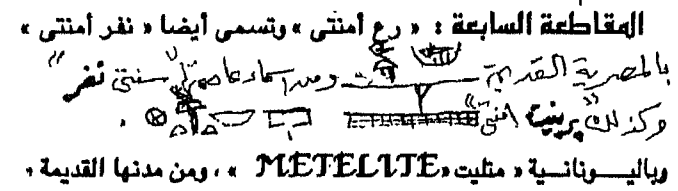 المقاطعة السابعة : « رع أمنتى » وتسمى أيضا « نفر أمنتى »
بالمصرية القديمة ومن اسماء عاصمتها "سنتى نفر"
وكذلك "برنيت امنتى" .
وباليونانية « متليت «METELITE » ، ومن مدنها القديمة :